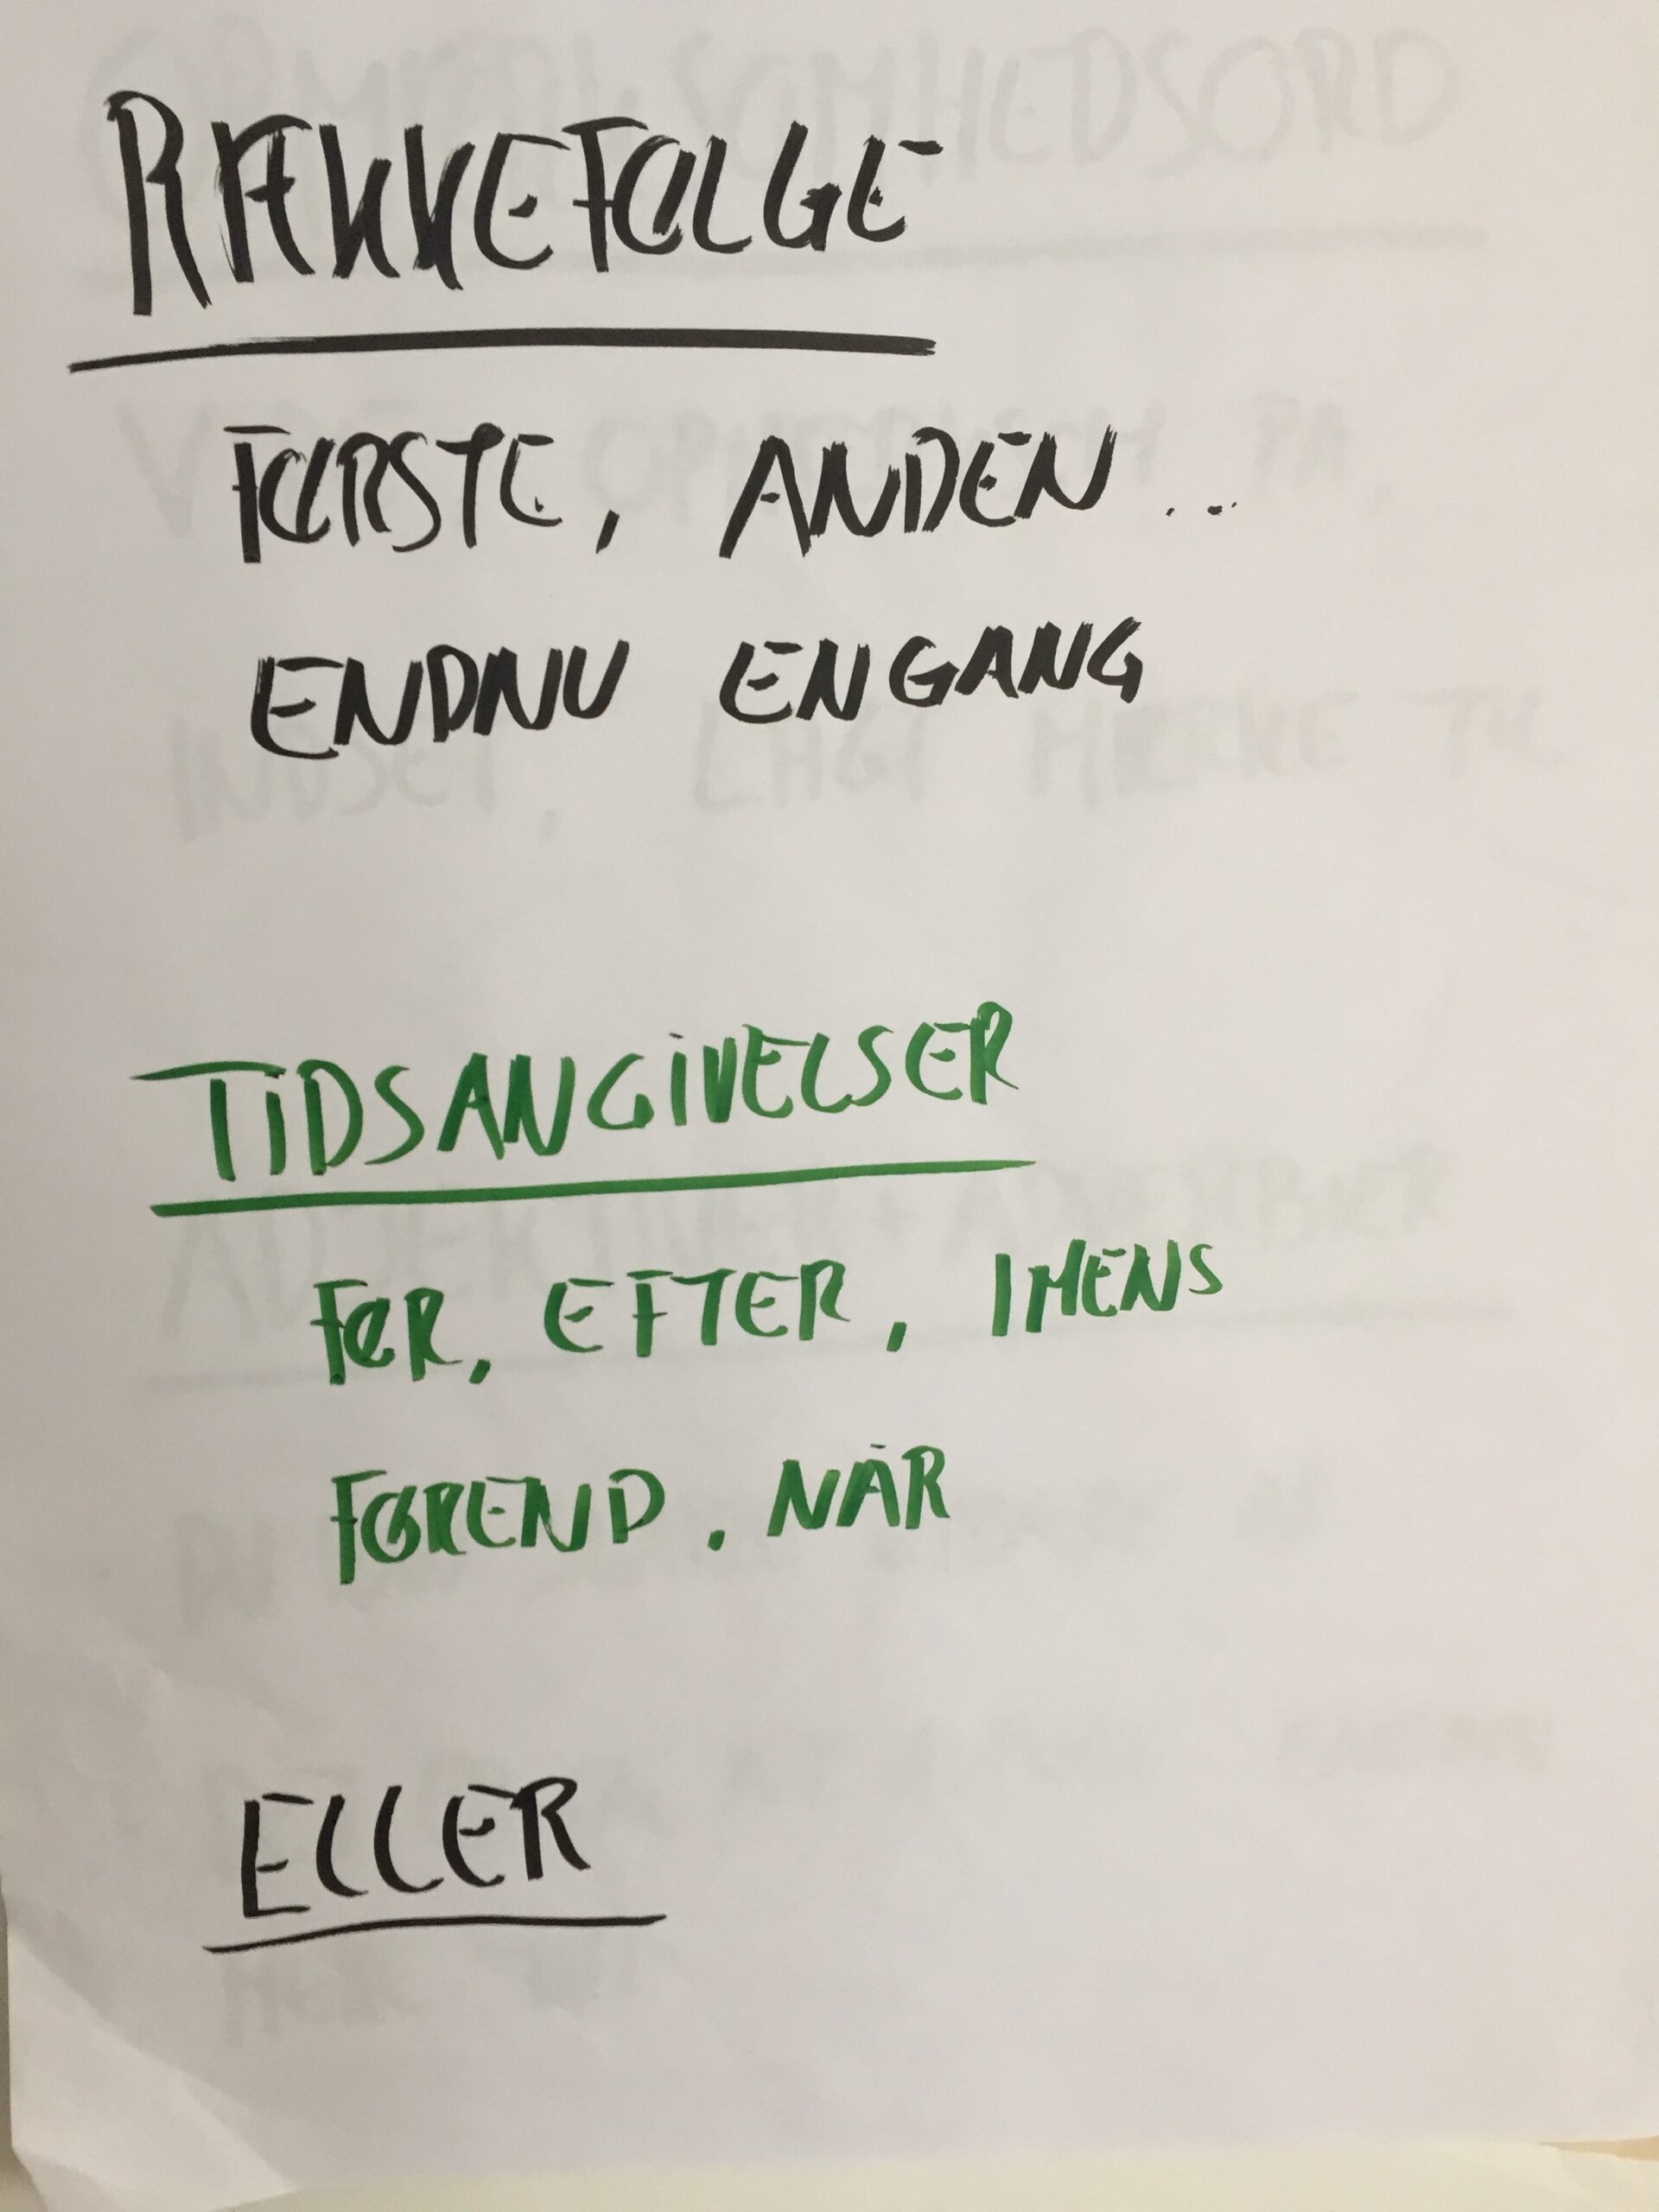 RÆKKEFØLGE
FØRSTE, ANDEN...
ENDNU ENGANG
TIDSANGIVELSER
FØR, EFTER, IMENS
FØREND, NÅR
ELLER